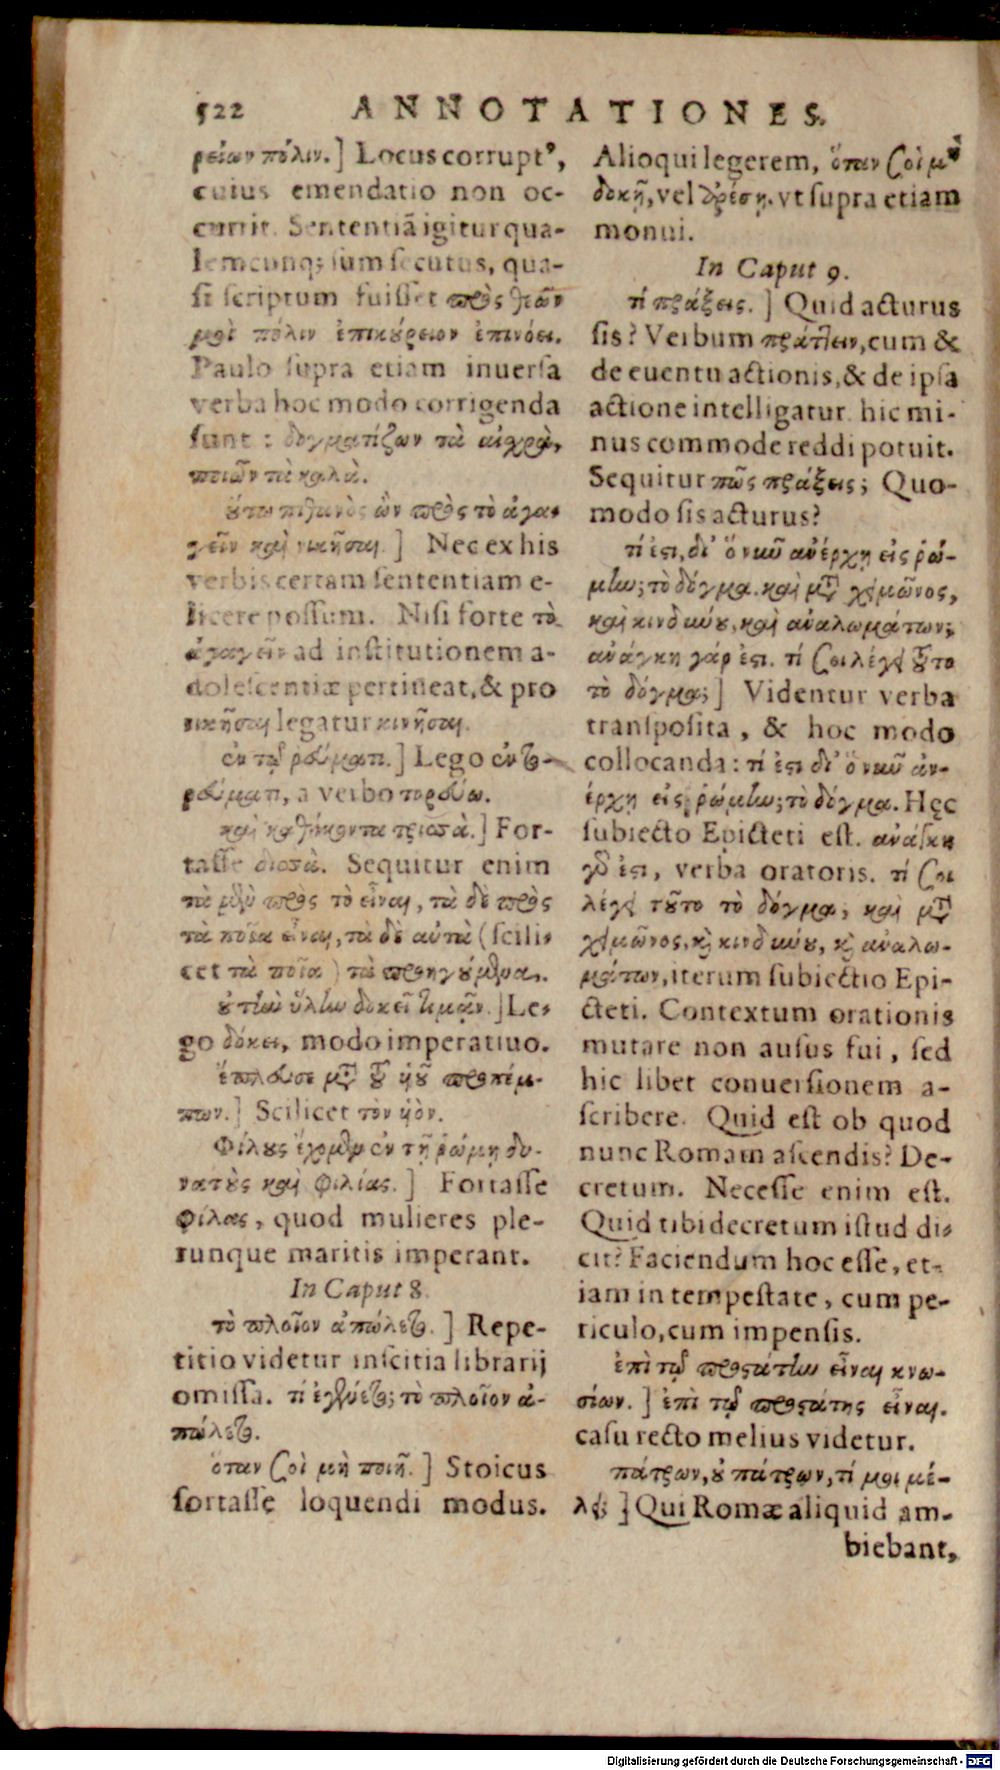 522 ANNOTATIONES.
ρείων πόλιν.] Locus corruptꝰ,
cuius emendatio non oc-
currit. Sententiã igitur qua-
lemcunq; sum secutus, qua-
si scriptum fuisset πρὸς θεῶν
μοὶ πόλιν ἐπικούρειον ἐπινόει.
Paulo supra etiam inuersa
verba hoc modo corrigenda
sunt : δογματίζων τὰ αἰχρὰ,
ποιῶν τὰ καλὰ.
οὕτω πιθανὸς ὢν πρὸς τὸ ἀγα-
γεῖν καὶ νικῆσαι.] Nec ex his
verbis certam sententiam e-
licere possum. Nisi forte τὸ
ἀγαγεῖν ad institutionem a-
dolescentiæ pertineat, & pro
νικῆσαι legatur κινῆσαι.
ἐν τῷ ρεύματι.] Lego ἐν το-
ρεύματι, a verbo τορεύω.
καὶ καθήκοντα τρισσὰ.] For-
tasse δισσὰ. Sequitur enim
τὰ μὲν πρὸς τὸ εἶναι, τὰ δὲ πρὸς
τὰ ποῖα εἶναι, τὰ δὲ αὐτὰ (scili-
cet τὰ ποῖα) τὰ προηγούμενα.
οὐ τὴν ὕλην δοκεῖ τιμᾷν.] Le-
go δόκει, modo imperatiuo.
ἔπλευσε μετὰ τοῦ ὑοῦ προπέμ-
πων.] Scilicet τὸν ὑὸν.
Φίλους ἔχομεν ἐν τῇ ρώμῃ δυ-
νατοὺς καὶ φιλίας.] Fortasse
φίλας, quod mulieres ple-
runque maritis imperant.
In Caput 8.
τὸ πλοῖον ἀπώλετο.] Repe-
titio videtur inscitia librarij
omissa. τί ἐγένετο; τὸ πλοῖον ἀ-
πώλετο.
ὅταν σοὶ μὴ ποιῇ.] Stoicus
fortasse loquendi modus.
Alioqui legerem, ὅταν σοὶ μὴ
δοκῇ, vel ἀρέσῃ. vt supra etiam
monui.
In Caput 9.
τί πράξεις.] Quid acturus
sis? Verbum πράττειν, cum &
de euentu actionis, & de ipsa
actione intelligatur hic mi-
nus commode reddi potuit.
Sequitur πῶς πράξεις; Quo-
modo sis acturus?
τί ἐστι, δι' ὃ νῦν ἀνέρχῃ εἰς ρώ-
μην; τὸ δόγμα. καὶ μετὰ χειμῶνος,
καὶ κινδύνου, καὶ ἀναλωμάτων;
ἀνάγκη γάρ ἐστι. τί σοι λέγει τοῦτο
τὸ δόγμα;] Videntur verba
transposita, & hoc modo
collocanda: τί ἐστι δι' ὃ νῦν ἀν-
έρχῃ εἰς ρώμην; τὸ δόγμα. Hęc
subiecto Epicteti est. ἀνάγκη
γάρ ἐστι, verba oratoris. τί σοι
λέγει τοῦτο τὸ δόγμα, καὶ μετὰ
χειμῶνος, καὶ κινδύνου, καὶ ἀναλω-
μάτων, iterum subiectio Epi-
cteti. Contextum orationis
mutare non ausus fui, sed
hic libet conuersionem a-
scribere. Quid est ob quod
nunc Romam ascendis? De-
cretum. Necesse enim est.
Quid tibi decretum istud di-
cit? Faciendum hoc esse, et-
iam in tempestate, cum pe-
riculo, cum impensis.
ἐπὶ τῷ προστάτην εἶναι κνω-
σίων.] ἐπὶ τῷ προστάτης εἶναι.
casu recto melius videtur.
πάτρων, οὐ πάτρων, τί μοι μέ-
λει;] Qui Romæ aliquid am-
biebant,
Digitalisierung gefördert durch die Deutsche Forschungsgemeinschaft - DFG